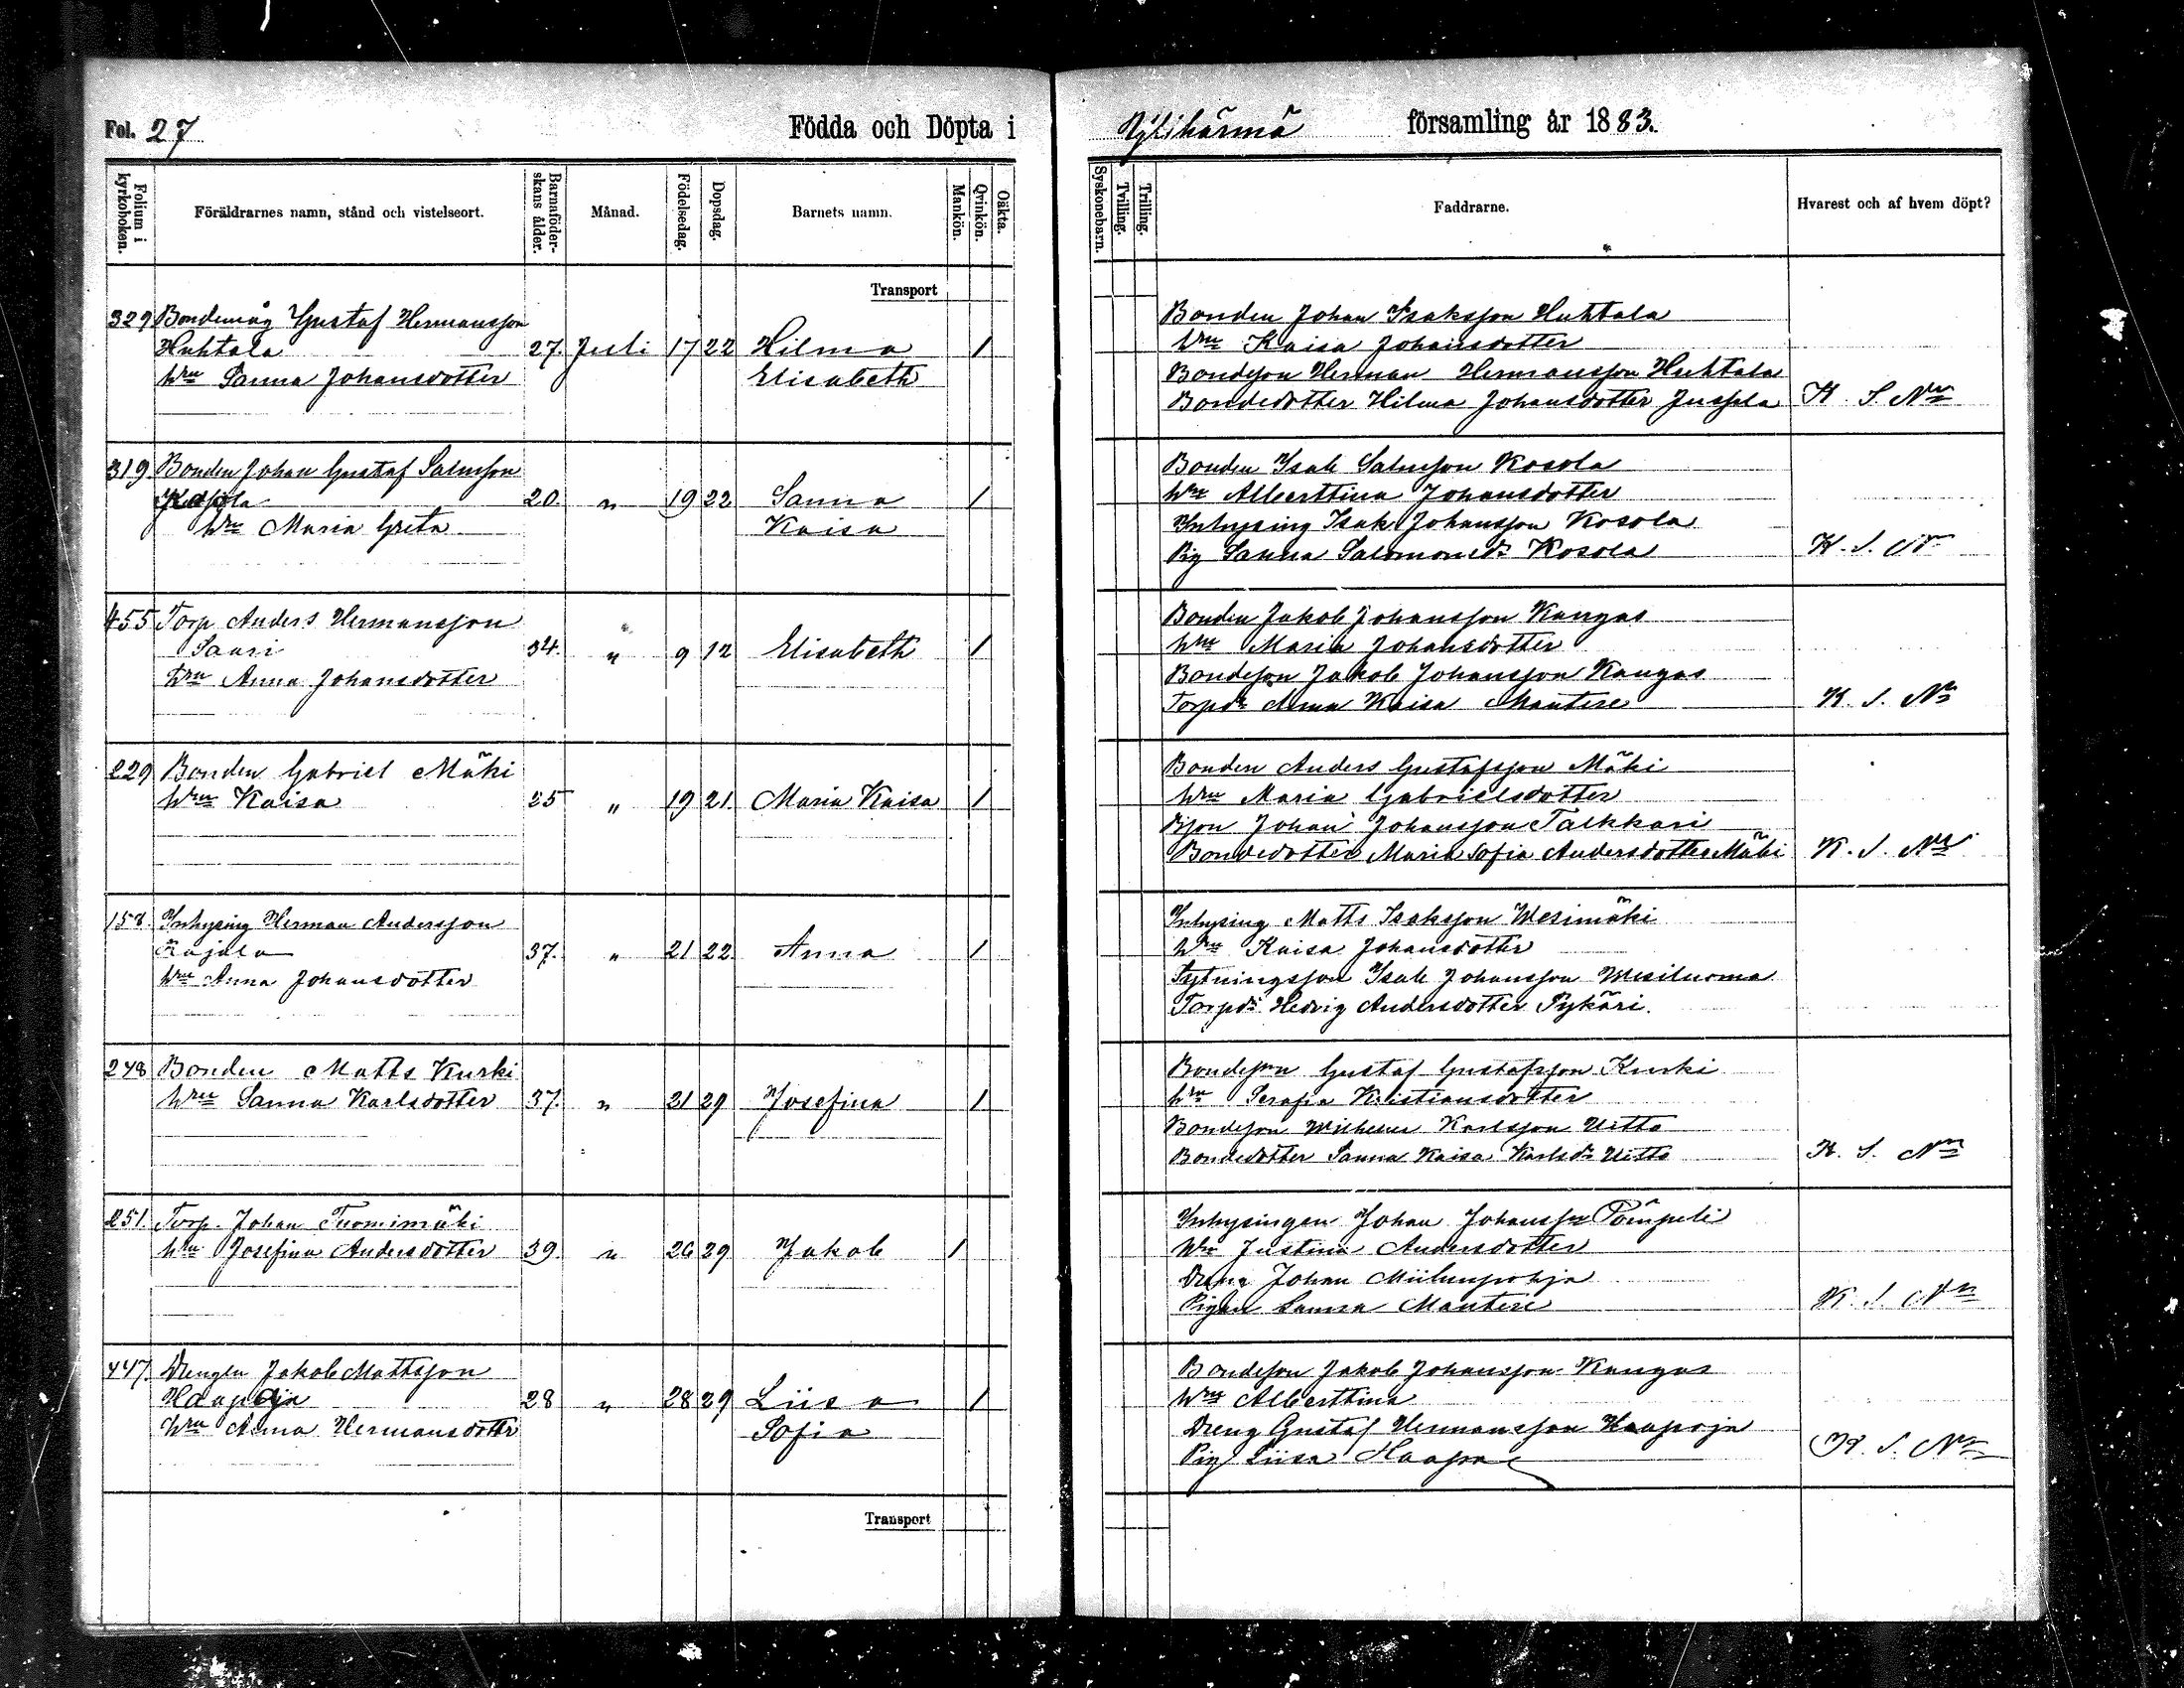 Fol. 27
Födda och Döpta i
Ylihärmä församling år 1883.
Folium i kyrkoboken.
Föräldrarnes namn, stånd och vistelseort.
Barnaföderskans ålder.
Månad.
Födelsedag.
Dopsdag.
Barnets namn.
Mankön.
Qvinkön.
Oäkta.
Syskonebarn.
Tvilling.
Trilling.
Faddrarne.
Hvarest och af hvem döpt?
Transport
329 Bondemåg Gustaf Hermansson
Huhtala 27. Juli 17 22 Hilma 1
hru Sanna Johansdotter Elisabeth
Bonden Johan Isaksson Huhtala
hru Kaisa Johansdotter
Bondeson Herman Hermansson Huhtala
Bondedotter Hilma Johansdotter Jussila K. S. Nm
319 Bonden Johan Gustaf Salmsson
20. " 19 22 Sanna 1
hru Maria Greta Kaisa
Bonden Isak Salmsson Kosola
hru Alberttina Johansdotter
Inhysing Isak Johansson Kosola
Pig Sanna Salomonsdr Kosola K. S. Nm
455 Torp Anders Hermansson
Saari 34. " 9 12 Elisabeth 1
hru Anna Johansdotter
Bonden Jakob Johansson Kangas
hru Maria Johansdotter
Bondeson Jakob Johansson Kangas
Torpdr Anna Kaisa Mantere K. S. Nm
229 Bonden Gabriel Mäki
hru Kaisa 25 " 19 21. Maria Kaisa 1
Bonden Anders Gustafsson Mäki
hru Maria Gabrielsdotter
Bson Johan Johansson Talkkari
Bondedotter Maria Sofia Andersdotter Mäki K. S. Nm
158. Inhysing Herman Andersson
Rajala 37. " 21 22. Anna 1
hru Anna Johansdotter
Inhysing Matts Isaksson Wesimäki
hru Kaisa Johansdotter
Sytningsson Isak Johansson Wesiluoma
Torpdr Hedvig Andersdotter Pykäri.
248 Bonden Matts Kurki
hru Sanna Karlsdotter 37. " 21 29 Josefina 1
Bondeson Gustaf Gustafsson Kurki
hru Serafia Kristiansdotter
Bondeson Wilhelm Karlsson Uitto
Bondedotter Sanna Kaisa Karlsdr Uitto K. S. Nm
251. Torp. Johan Tuomimäki
hru Josefina Andersdotter 39. " 26 29 Jakob 1
Inhysingen Johan Johansson Pömpeli
hru Justina Andersdotter
Dreng Johan Miilunpohja
Pigan Sanna Mantere K. S. Nm
447. Drengen Jakob Mattsson
Haapoja 28 " 28 29 Liisa 1
hru Anna Hermansdottr Sofia
Bondeson Jakob Johansson Kangas
hru Alberttina
Dreng Gustaf Hermansson Haapoja
Pig Liisa Haapoja K. S. Nm
Transport